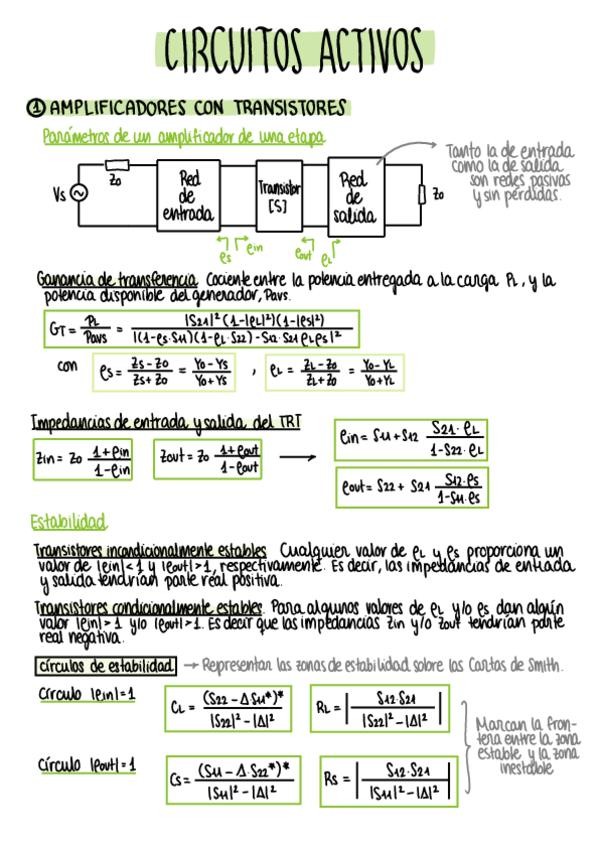 CIRCUITOS ACTIVOS
① AMPLIFICADORES CON TRANSISTORES
Parámetros de un amplificador de una etapa
Vs
Zo
Red de entrada
Transistor [S]
Red de salida
Zo
Tanto la de entrada
como la de salida
son redes pasivas
y sin pérdidas.
ρs ρin ρout ρL
Ganancia de transferencia Cociente entre la potencia entregada a la carga PL, y la
potencia disponible del generador, Pavs.
GT = PL / Pavs = |S21|² (1-|ρL|²)(1-|ρs|²) / |(1-ρs·S11)(1-ρL·S22)-S12·S21ρLρs|²
con ρs = Zs-Zo / Zs+Zo = Yo-Ys / Yo+Ys , ρL = ZL-Zo / ZL+Zo = Yo-YL / Yo+YL
Impedancias de entrada y salida del TRT
Zin = Zo 1+ρin / 1-ρin
Zout = Zo 1+ρout / 1-ρout
→
ρin = S11+S12 S21·ρL / 1-S22·ρL
ρout = S22+ S21 S12·ρs / 1-S11·ρs
Estabilidad
Transistores incondicionalmente estables Cualquier valor de ρL y ρs proporciona un
valor de |ρin|<1 y |ρout|>1, respectivamente. Es decir, las impedancias de entrada
y salida tendrían parte real positiva.
Transistores condicionalmente estables. Para algunos valores de ρL y/o ρs dan algún
valor |ρin|>1 y/o |ρout|>1. Es decir que las impedancias Zin y/o Zout tendrían parte
real negativa.
círculos de estabilidad → Representar las zonas de estabilidad sobre las Cartas de Smith.
Círculo |ρin|=1
CL = (S22 - ΔS11*)* / |S22|² - |Δ|²
RL = | S12·S21 / |S22|² - |Δ|² |
Círculo |ρout|=1
Cs = (S11 - Δ·S22*)* / |S11|² - |Δ|²
Rs = | S12·S21 / |S11|² - |Δ|² |
Marcan la fron-
tera entre la zona
estable y la zona
inestable